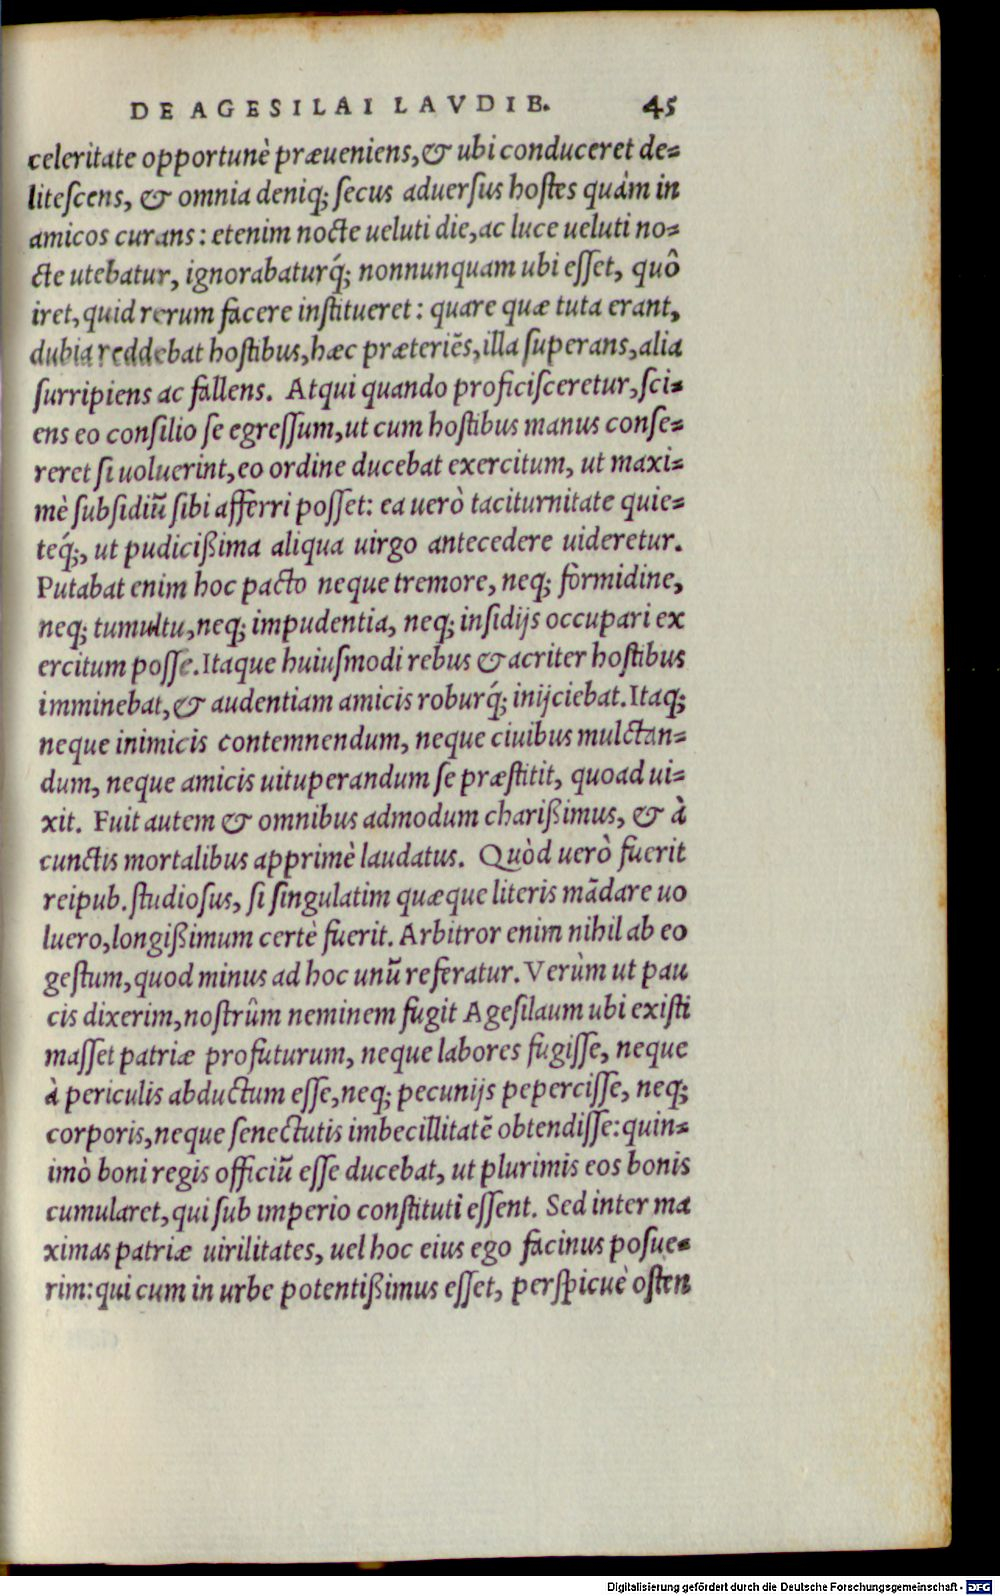 DE AGESILAI LAVDIB. 45
celeritate opportunè præueniens, & ubi conduceret de=
litescens, & omnia deniq; secus aduersus hostes quàm in
amicos curans: etenim nocte ueluti die, ac luce ueluti no=
cte utebatur, ignorabaturq́; nonnunquam ubi esset, quô
iret, quid rerum facere institueret: quare quæ tuta erant,
dubia reddebat hostibus, hæc præteriẽs, illa superans, alia
surripiens ac fallens. Atqui quando proficisceretur, sci=
ens eo consilio se egressum, ut cum hostibus manus conse=
reret si uoluerint, eo ordine ducebat exercitum, ut maxi=
mè subsidiũ sibi afferri posset: ea uerò taciturnitate quie=
teq́;, ut pudicißima aliqua uirgo antecedere uideretur.
Putabat enim hoc pacto neque tremore, neq; formidine,
neq; tumultu, neq; impudentia, neq; insidijs occupari ex
ercitum posse. Itaque huiusmodi rebus & acriter hostibus
imminebat, & audentiam amicis roburq́; inijciebat. Itaq;
neque inimicis contemnendum, neque ciuibus mulctan=
dum, neque amicis uituperandum se præstitit, quoad ui=
xit. Fuit autem & omnibus admodum charißimus, & à
cunctis mortalibus apprimè laudatus. Quòd uerò fuerit
reipub. studiosus, si singulatim quæque literis mãdare uo
luero, longißimum certè fuerit. Arbitror enim nihil ab eo
gestum, quod minus ad hoc unũ referatur. Verùm ut pau
cis dixerim, nostrûm neminem fugit Agesilaum ubi existi
masset patriæ profuturum, neque labores fugisse, neque
à periculis abductum esse, neq; pecunijs pepercisse, neq;
corporis, neque senectutis imbecillitatẽ obtendisse: quin=
imò boni regis officiũ esse ducebat, ut plurimis eos bonis
cumularet, qui sub imperio constituti essent. Sed inter ma
ximas patriæ uirilitates, uel hoc eius ego facinus posue=
rim: qui cum in urbe potentißimus esset, perspicuè osten
Digitalisierung gefördert durch die Deutsche Forschungsgemeinschaft - DFG